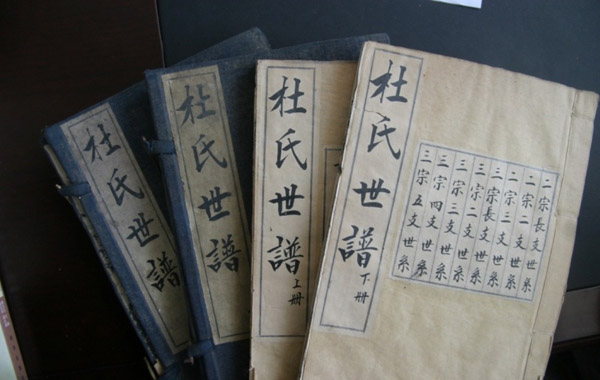 杜氏世譜
杜氏世譜
杜氏世譜上册
杜氏世譜下册
二宗長支世系
二宗二支世系
二宗三支世系
三宗長支世系
三宗二支世系
三宗三支世系
三宗四支世系
三宗五支世系